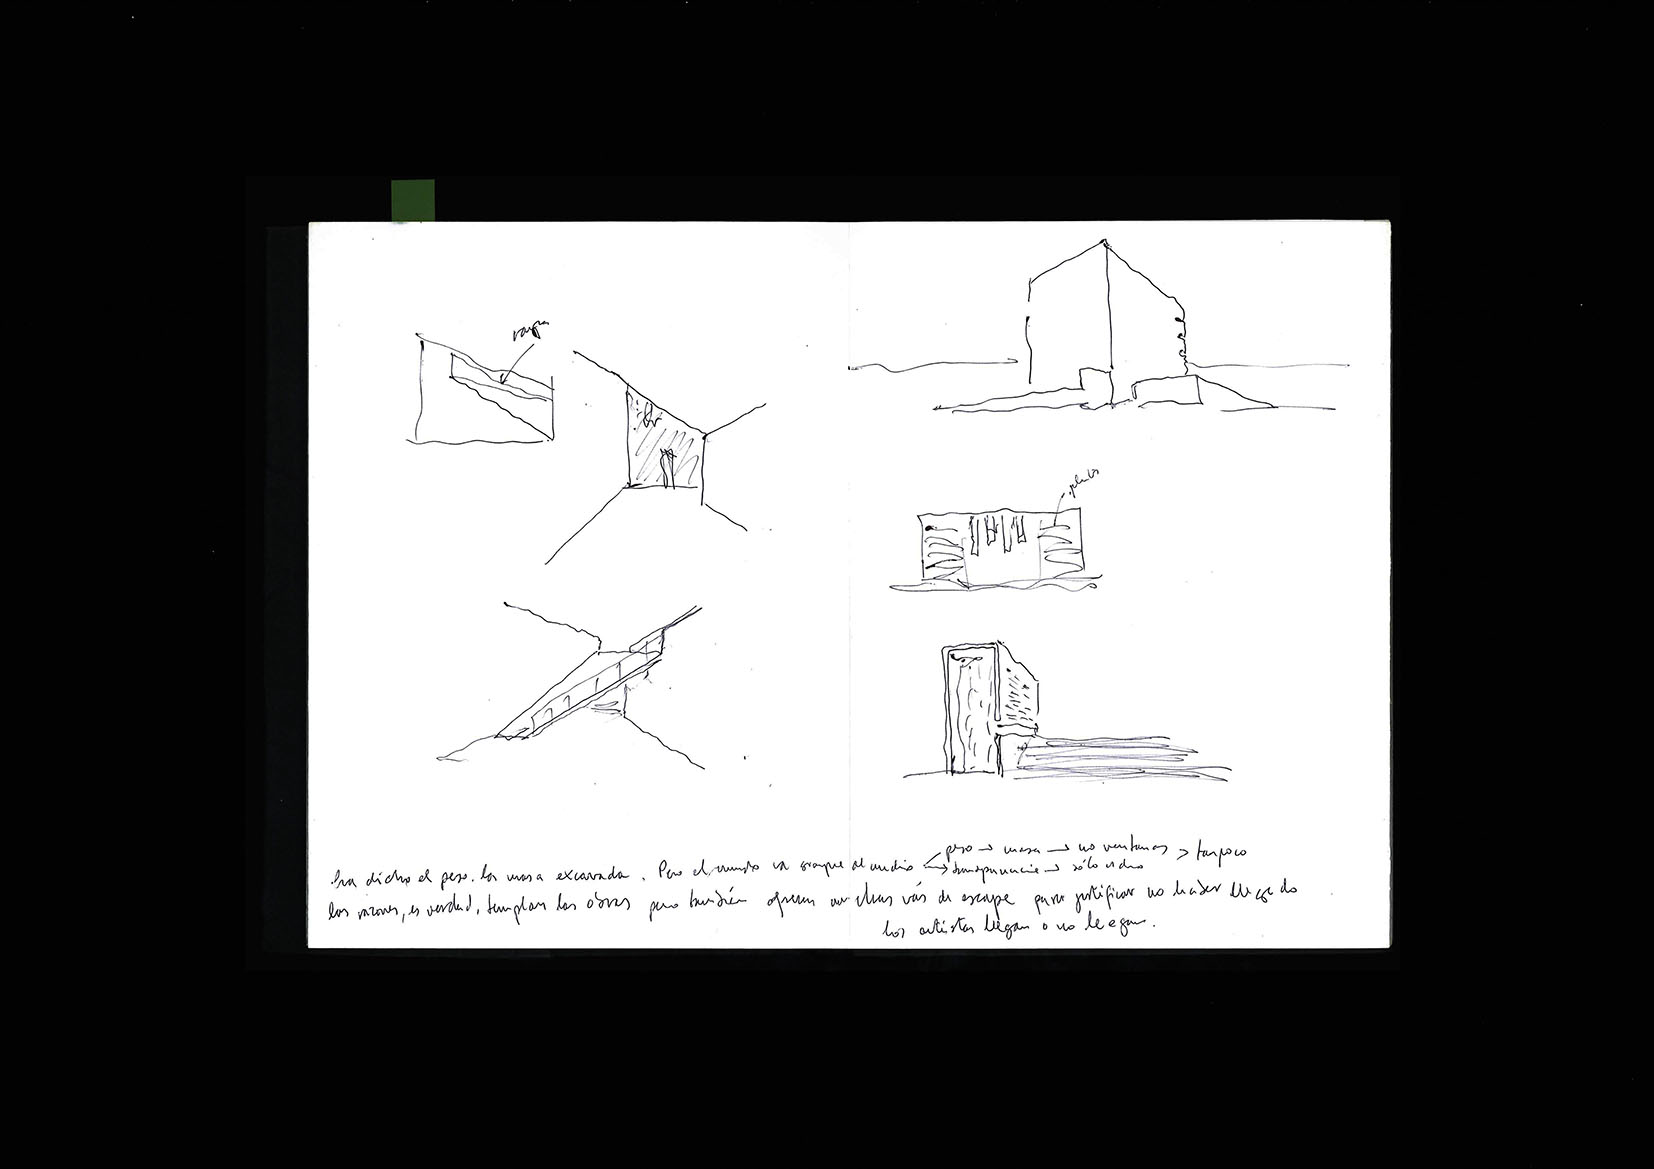 rampa
ha dicho el peso. la masa excavada. Pero el mundo va siempre al medio
peso → masa → no ventanas > tampoco
transparencia → sólo vidrio
las razones, es verdad, templan las obras pero también ofrecen muchas vías de escape para justificar no haber llegado
los artistas llegan o no llegan.